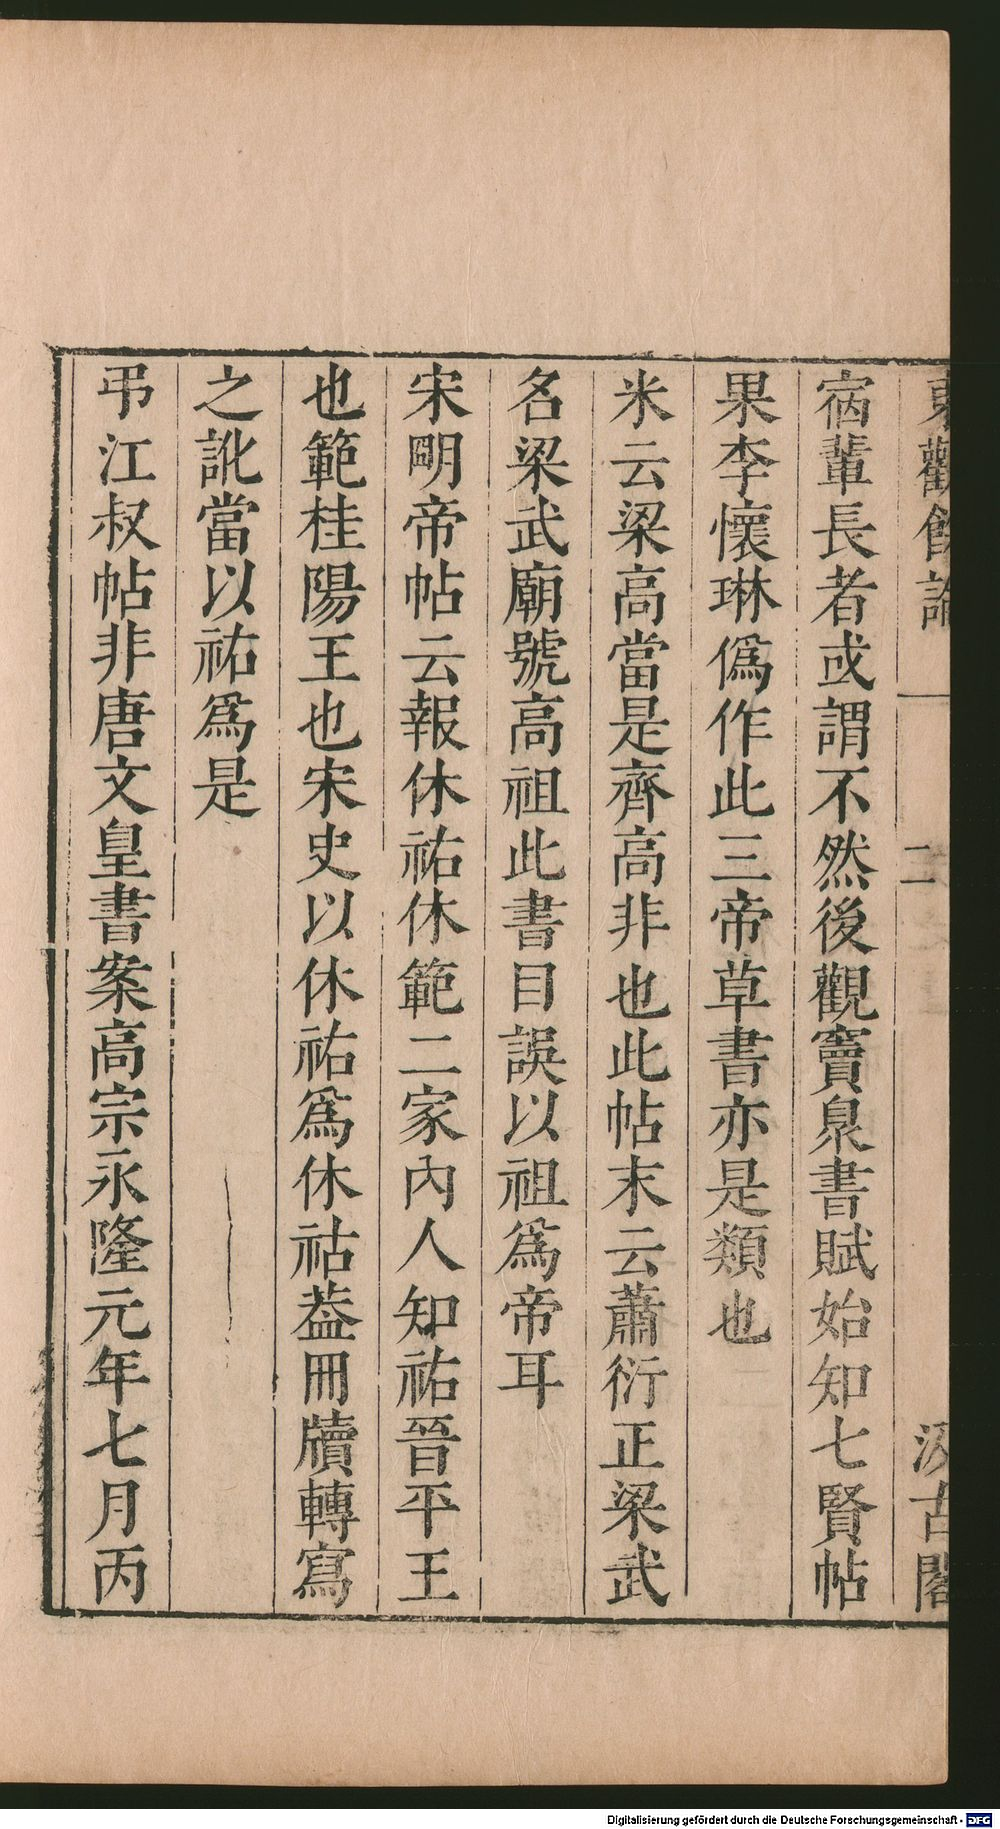 東觀餘論
二
汲古閣
宿輩長者或謂不然後觀竇臮書賦始知七賢帖
果李懷琳僞作此三帝草書亦是類也
米云梁高當是齊高非也此帖末云蕭衍正梁武
名梁武廟號高祖此書目誤以祖爲帝耳
宋明帝帖云報休祐休範二家內人知祐晉平王
也範桂陽王也宋史以休祐爲休祜葢冊牘轉寫
之訛當以祐爲是
弔江叔帖非唐文皇書案高宗永隆元年七月丙
Digitalisierung gefördert durch die Deutsche Forschungsgemeinschaft - DFG